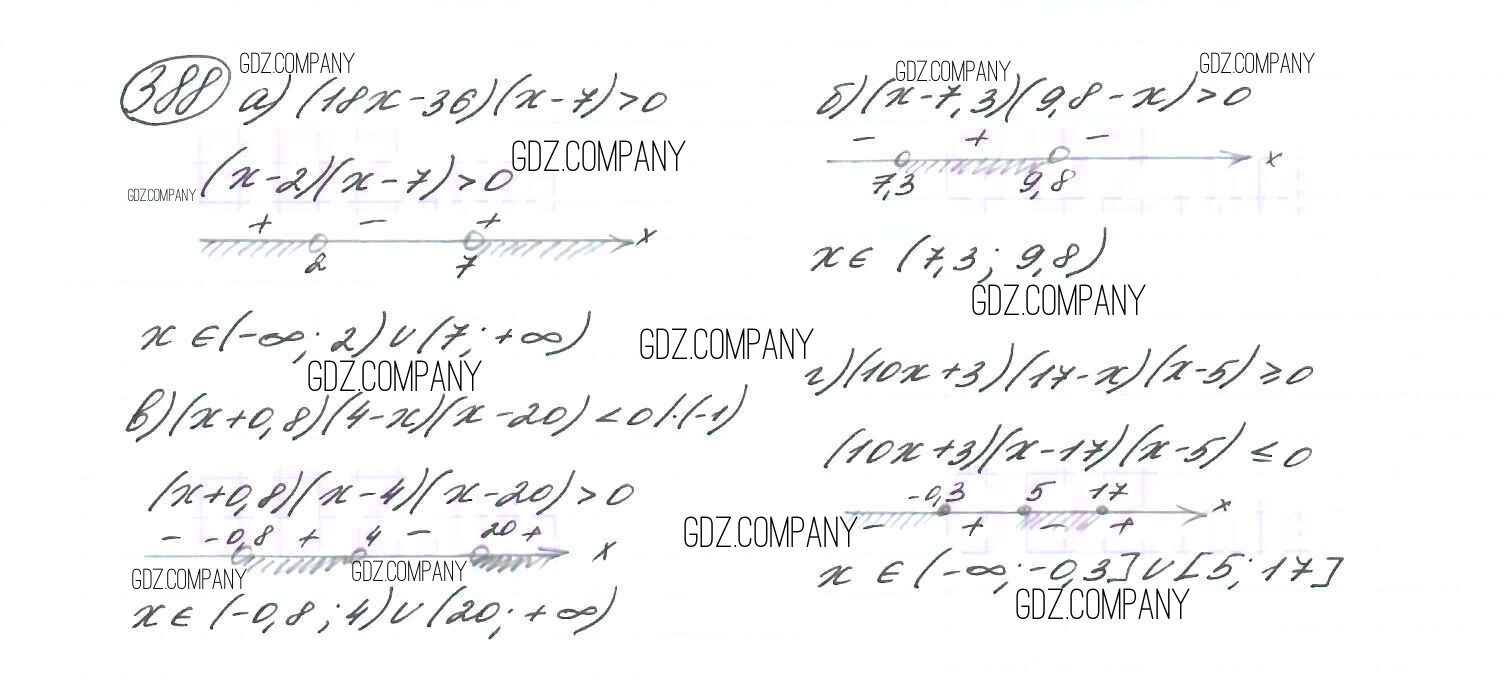 388 а) (18x-36)(x-7)>0
(x-2)(x-7)>0
+ - +
2 7 x
x∈(-∞; 2)∪(7; +∞)
в)(x+0,8)(4-x)(x-20)<0 |·(-1)
(x+0,8)(x-4)(x-20)>0
- -0,8 + 4 - 20 + x
x∈(-0,8; 4)∪(20; +∞)
б)(x-7,3)(9,8-x)>0
- + -
7,3 9,8 x
x∈ (7,3; 9,8)
г)(10x+3)(17-x)(x-5)≥0
(10x+3)(x-17)(x-5)≤0
-0,3 5 17 x
- + - +
x ∈(-∞; -0,3]∪[5; 17]
GDZ.COMPANY
GDZ.COMPANY
GDZ.COMPANY
GDZ.COMPANY
GDZ.COMPANY
GDZ.COMPANY
GDZ.COMPANY
GDZ.COMPANY
GDZ.COMPANY
GDZ.COMPANY
GDZ.COMPANY
GDZ.COMPANY
GDZ.COMPANY